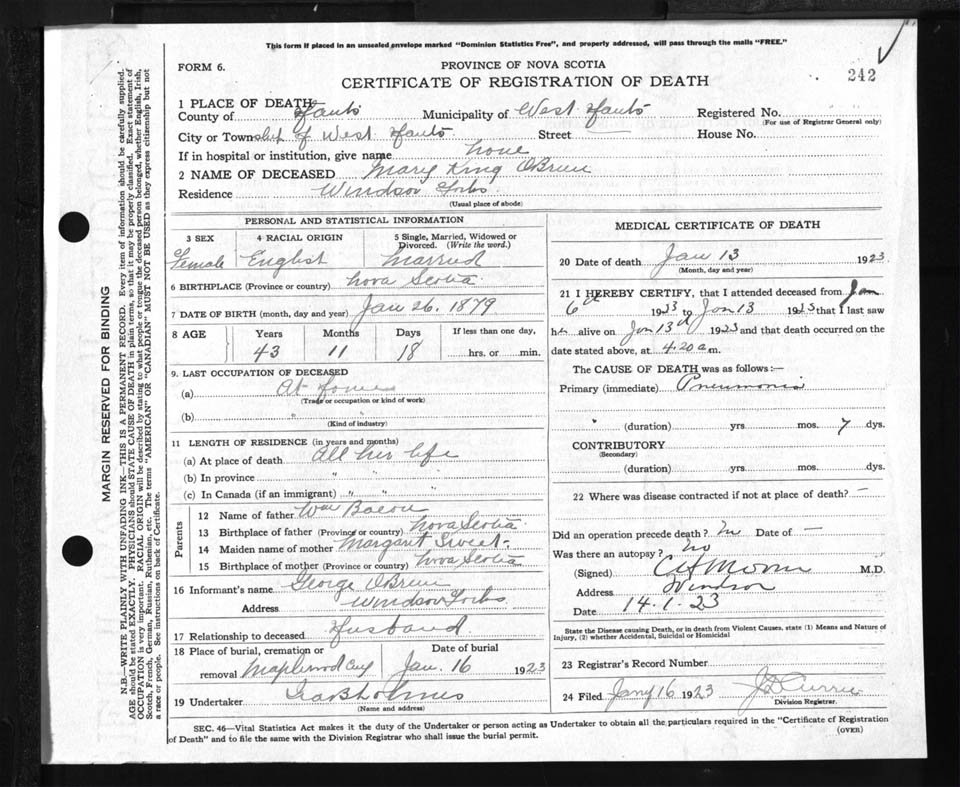 This form if placed in an unsealed envelope marked "Dominion Statistics Free", and properly addressed, will pass through the mails "FREE."
FORM 6.
PROVINCE OF NOVA SCOTIA
CERTIFICATE OF REGISTRATION OF DEATH
242
1 PLACE OF DEATH
County of Hants Municipality of West Hants Registered No.
(For use of Registrar General only)
City or Township of West Hants Street — House No.
If in hospital or institution, give name none
2 NAME OF DECEASED Mary King OBrien
Residence Windsor Forks
(Usual place of abode)
PERSONAL AND STATISTICAL INFORMATION
3 SEX 4 RACIAL ORIGIN 5 Single, Married, Widowed or Divorced. (Write the word.)
Female English Married
6 BIRTHPLACE (Province or country) Nova Scotia
7 DATE OF BIRTH (month, day and year) Jan 26. 1879
8 AGE Years Months Days If less than one day,
43 11 18 hrs. or min.
9. LAST OCCUPATION OF DECEASED
(a) At Home
(Trade or occupation or kind of work)
(b) "
(Kind of industry)
11 LENGTH OF RESIDENCE (in years and months)
(a) At place of death All her life
(b) In province " "
(c) In Canada (if an immigrant) " " "
Parents
12 Name of father Wm Bacon
13 Birthplace of father (Province or country) Nova Scotia
14 Maiden name of mother Margaret Sweet
15 Birthplace of mother (Province or country) Nova Scotia
16 Informant's name George OBrien
Address Windsor Forks
17 Relationship to deceased Husband
18 Place of burial, cremation or removal Maplewood Cem Date of burial Jan. 16 1923
19 Undertaker Holmes
(Name and address)
MEDICAL CERTIFICATE OF DEATH
20 Date of death Jan 13 1923
(Month, day and year)
21 I HEREBY CERTIFY, that I attended deceased from Jan
6th 1923 to Jan 13 1923 that I last saw
her alive on Jan 13th 1923 and that death occurred on the
date stated above, at 4.20 a.m.
The CAUSE OF DEATH was as follows:—
Primary (immediate) Pneumonia
" (duration) yrs. mos. 7 dys.
CONTRIBUTORY
(Secondary)
(duration) yrs. mos. dys.
22 Where was disease contracted if not at place of death? —
Did an operation precede death? No Date of —
Was there an autopsy? No
(Signed) M.D.
Address Windsor
Date 14-1-23
State the Disease causing Death, or in death from Violent Causes, state (1) Means and Nature of
Injury, (2) whether Accidental, Suicidal or Homicidal
23 Registrar's Record Number
24 Filed Jany 16 1923 Currie
Division Registrar.
SEC. 46—Vital Statistics Act makes it the duty of the Undertaker or person acting as Undertaker to obtain all the particulars required in the "Certificate of Registration
of Death" and to file the same with the Division Registrar who shall issue the burial permit.
(OVER)
MARGIN RESERVED FOR BINDING
N.B.—WRITE PLAINLY WITH UNFADING INK—THIS IS A PERMANENT RECORD. Every item of information should be carefully supplied.
AGE should be stated EXACTLY. PHYSICIANS should STATE CAUSE OF DEATH in plain terms, so that it may be properly classified. Exact statement of
OCCUPATION is very important. RACIAL ORIGIN will be described by stating to what people or tongue the deceased person belonged, whether English, Irish,
Scotch, French, German, Russian, Ruthenian, etc. The terms "AMERICAN" OR "CANADIAN" MUST NOT BE USED as they express citizenship but not
a race or people. See instructions on back of Certificate.